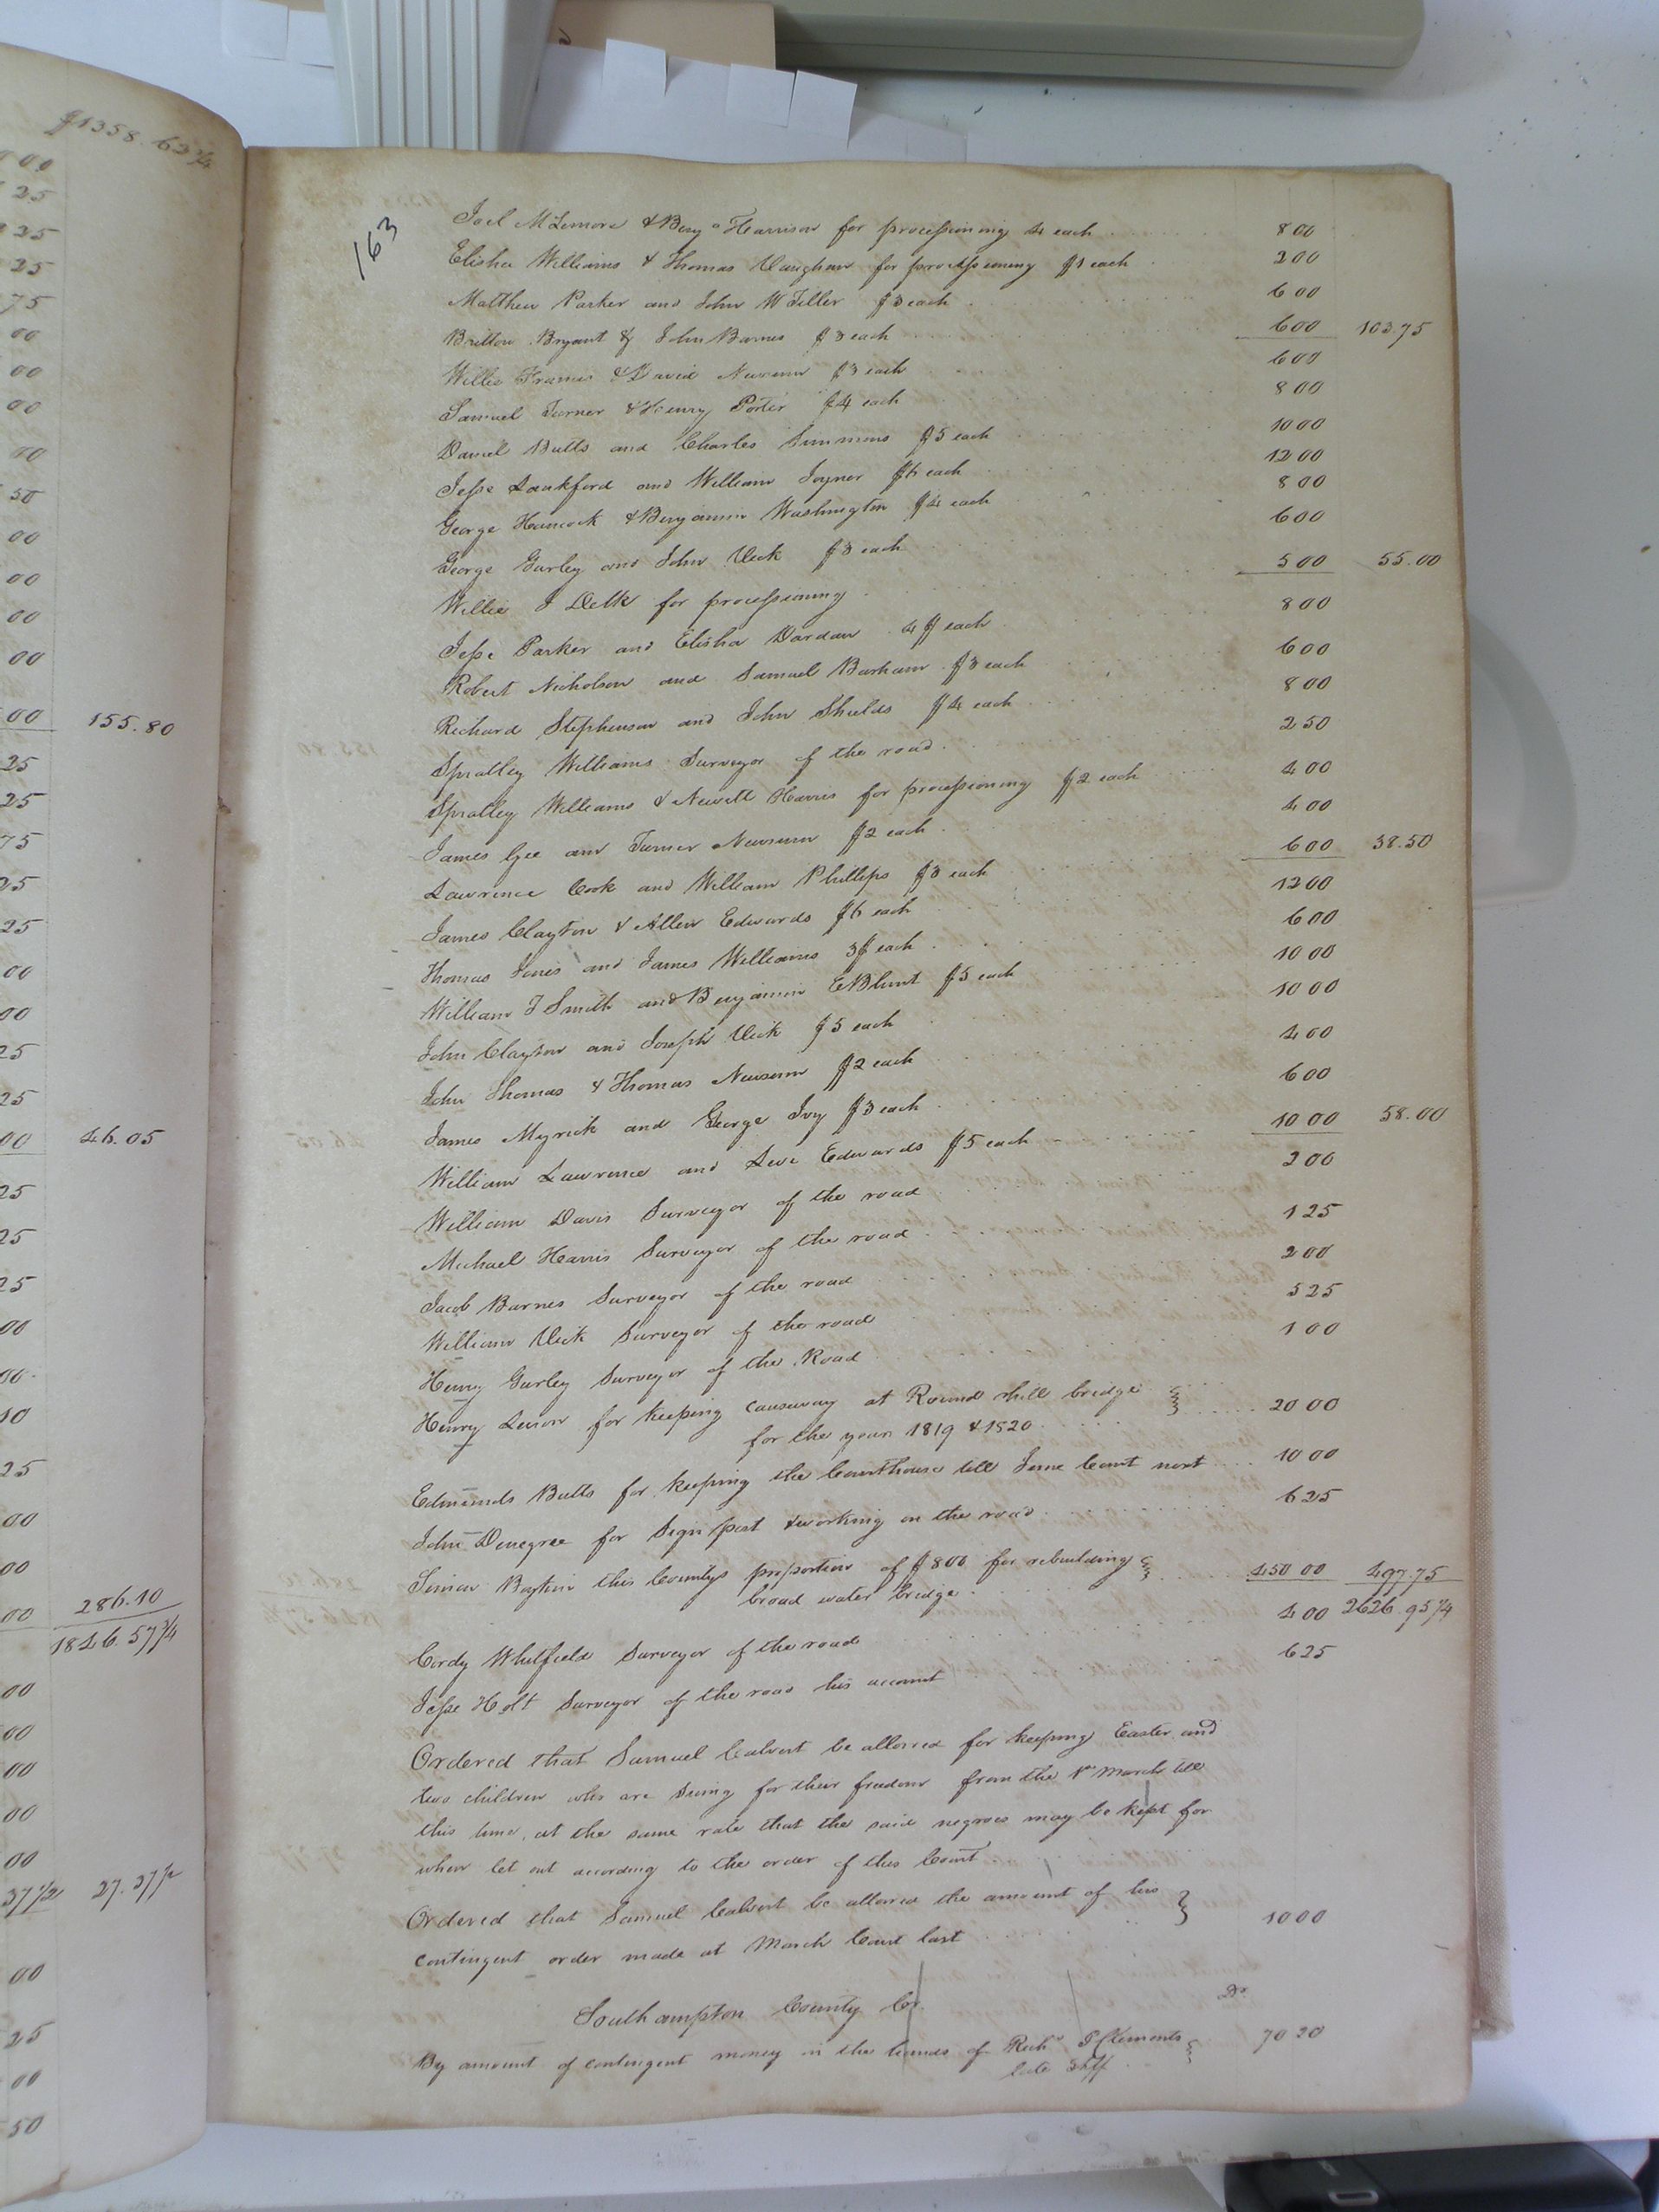 $1358.63¼
00
25
25
25
75
00
00
00
00
50
00
00
00
00
00 155.80
25
25
75
25
25
00
00
25
25
00 46.05
25
25
25
00
00
10
25
00
00
00 286.10
1846.57¾
00
00
00
00
00
37½ 27.37½
00
25
00
50
163
Joel McLemore & Benjn Harrison for processioning 4 each 8 00
Elisha Williams & Thomas Vaughan for processioning $1 each 2 00
Matthew Parker and John W Teller $3 each 6 00
Britton Bryant & John Barnes $3 each 6 00 103.75
Willie Francis & David Newsum $3 each 6 00
Samuel Turner & Henry Porter $4 each 8 00
Daniel Butts and Charles Simmons $5 each 10 00
Jesse Lankford and William Joyner $6 each 12 00
George Hancock & Benjamin Washington $4 each 8 00
George Gurley and John Vick $3 each 6 00
Willie J Delk for processioning 5 00 55.00
Jesse Parker and Elisha Dardan 4$ each 8 00
Robert Nicholson and Samuel Barham $3 each 6 00
Richard Stephenson and John Shields $4 each 8 00
Spratley Williams Surveyor of the road 2 50
Spratley Williams & Newitt Harris for processioning $2 each 4 00
James Gee and Turner Newsum $2 each 4 00
Lawrence Cook and William Phillips $3 each 6 00 38.50
James Clayton & Allen Edwards $6 each 12 00
Thomas Jones and James Williams 3$ each 6 00
William J Smith and Benjamin E Blunt $5 each 10 00
John Clayton and Joseph Vick $5 each 10 00
John Thomas & Thomas Newsum $2 each 4 00
James Myrick and George Ivy $3 each 6 00
William Lawrence and Levi Edwards $5 each 10 00 58.00
William Davis Surveyor of the road 2 00
Michael Harris Surveyor of the road 1 25
Jacob Barnes Surveyor of the road 2 00
William Vick Surveyor of the road 5 25
Henry Gurley Surveyor of the Road 1 00
Henry Lewon for keeping causeway at Round hill bridge
for the years 1819 & 1820 20 00
Edmunds Butts for keeping the Courthouse till June Court next 10 00
John Denegree for Sign post & working on the road 6 25
Simon Boykin this Countys proportion of $800 for rebuilding
broad water bridge 450 00 497.75
2626.95¾
Cordy Whitfield Surveyor of the road 4 00
Jesse Holt Surveyor of the road his account 6 25
Ordered that Samuel Calvert be allowed for keeping Easter and
two children who are suing for their freedom from the 1st March till
this time, at the same rate that the said negroes may be kept for
when let out according to the order of this Court
Ordered that Samuel Calvert be allowed the amount of his
contingent order made at March Court last 10 00
Southampton County Cr.
Dr
By amount of contingent money in the hands of Richd P Clements
late Shff 70 20